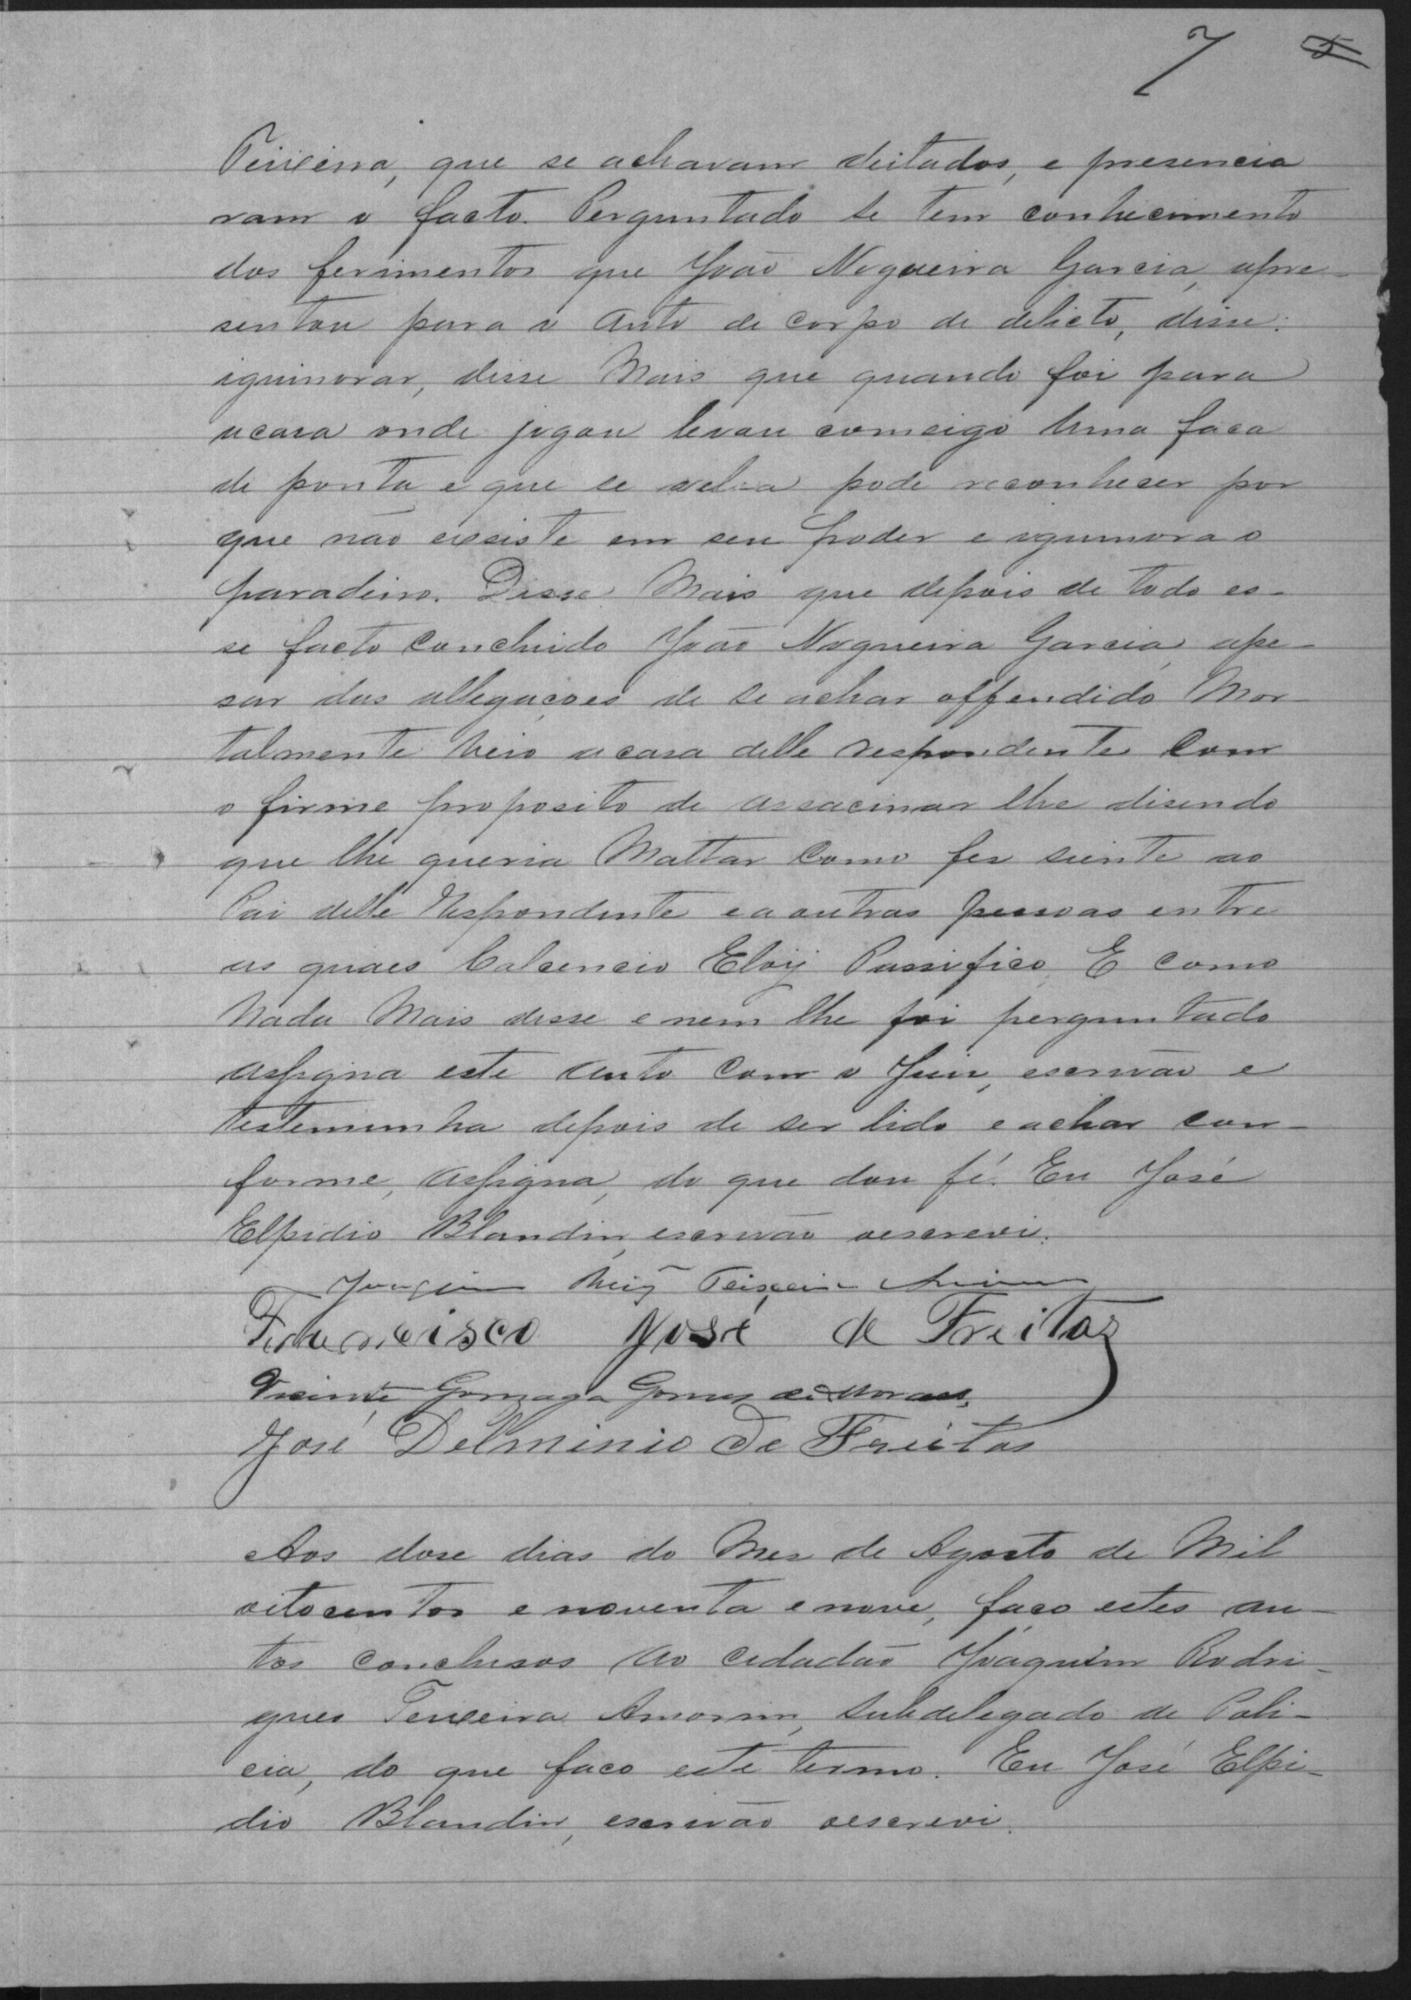 7 5
Teixeira, que se achavam deitados, e presencia
ram o facto. Perguntado se tem conhecimento
dos ferimentos que João Nogueira Garcia, apre-
sentou para o auto de corpo de delicto, disse:
iguinorar, disse Mais que quando foi para
acasa onde jogou levou comsigo uma faca
de ponta, e que se pode reconhecer por
que não existe em seu poder e iguinora o
paradeiro. Disse Mais que depois de todo es-
se facto concluido João Nogueira Garcia, ape-
sar das allegaçoes de se achar offendido Mor-
talmente veio acasa delle respondente com
o firme proposito de assacinar lhe disendo
que lhe queria Mattar como fes siente ao
Pai delle Respondente e a outras pessoas entre
as quaes Calcencio Eloÿ Passifico, E como
Nada Mais disse e nem lhe foi perguntado
assigna este auto com o Juiz, escrivão e
testemunha depois de ser lido e achar con-
forme, assigna, do que dou fé. Eu José
Elpidio Blandin, escrivão oescrevi.
Joaquim Teixeira Amorim
Francisco José de Freitas
Vicente Gonzaga Gomes de Moraes,
José Delminio de Freitas
Aos dose dias do Mes de Agosto de Mil
oitocentos e noventa e nove, faço estes au-
tos conclusos ao cidadão Joaquim Rodri-
gues Teixeira Amorim, Subdelegado de Poli-
cia, do que faco este termo. Eu José Elpi-
dio Blandin, escrivão oescrevi.